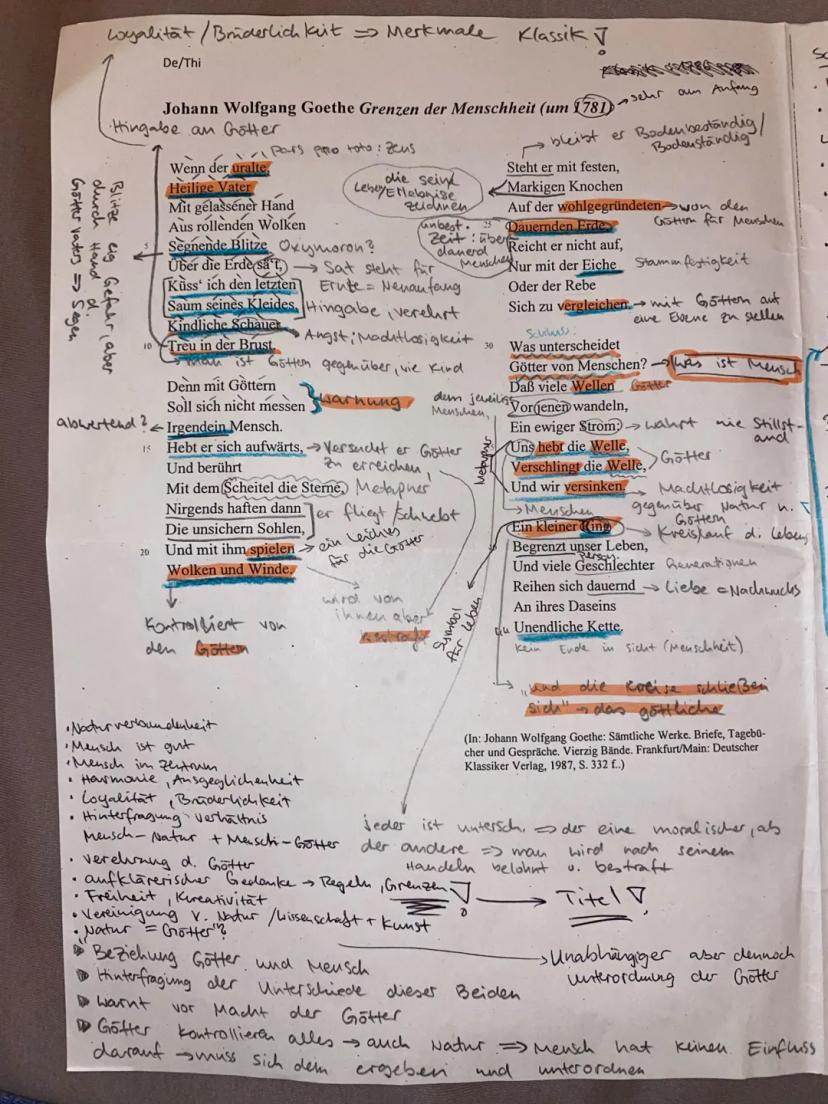 Loyalität / Brüderlichkeit => Merkmale Klassik!
De/Thi
Johann Wolfgang Goethe Grenzen der Menschheit (um 1781)
sehr am Anfang
Hingabe an Götter
pars pro toto: Zeus
Wenn der uralte,
Heilige Vater
Mit gelassener Hand
Aus rollenden Wolken
5 Segnende Blitze Oxymoron?
Über die Erde sä't, → Sat steht für
Ernte = Neuanfang
Küss' ich den letzten
Saum seines Kleides, Hingabe, verehrt
Kindliche Schauer
Angst; Machtlosigkeit
10 Treu in der Brust.
→ man ist Göttern gegenüber, wie Kind
Blitze eig Gefahr, aber
durch Hand d.
Göttervaters => Segen
Denn mit Göttern
Soll sich nicht messen Warnung
abwertend? ← Irgendein Mensch.
15 Hebt er sich aufwärts, → Versucht er Götter
zu erreichen,
Und berührt
Mit dem Scheitel die Sterne, Metapher
Nirgends haften dann
Die unsichern Sohlen, er fliegt / schwebt
20 Und mit ihm spielen → ein leichtes
für die Götter
Wolken und Winde.
Kontrolliert von
den Göttern
wird von
ihnen aber
bestraft
→ bleibt er Bodenbeständig/
Bodenständig
Steht er mit festen,
Markigen Knochen
die sein
Leben/Erlebnisse
zeichnen
Auf der wohlgegründeten → von den
Göttern für Menschen
25 Dauernden Erde,
unbest.
Zeit: über
danerd
Menschen
Reicht er nicht auf,
Nur mit der Eiche Stammfestigkeit
Oder der Rebe
Sich zu vergleichen. → mit Göttern auf
eine Ebene zu stellen
30 Was unterscheidet
Götter von Menschen? → Was ist Mensch
Daß viele Wellen Götter
dem jeweilig
Menschen,
Vor jenen wandeln,
Ein ewiger Strom: → wahrt nie Stillst-
and
Metapher
Uns hebt die Welle,
Verschlingt die Welle, Götter
Und wir versinken. → Machtlosigkeit
gegenüber Natur u.
Göttern
→ Menschen
Ein kleiner Ring → Kreislauf d. Leben
Begrenzt unser Leben,
Und viele Geschlechter Generationen
Reihen sich dauernd → Liebe = Nachwuchs
An ihres Daseins
Unendliche Kette.
Symbol
für Leben
Kein Ende in sicht (Menschheit)
→ "und die Kreise schließen
sich" → das göttliche
(In: Johann Wolfgang Goethe: Sämtliche Werke. Briefe, Tagebü-
cher und Gespräche. Vierzig Bände. Frankfurt/Main: Deutscher
Klassiker Verlag, 1987, S. 332 f..)
• Naturverbundenheit
• Mensch ist gut
• Mensch im Zentrum
• Harmonie, Ausgeglichenheit
• Loyalität, Brüderlichkeit
• Hinterfragung Verhältnis
Mensch-Natur + Mensch-Götter
• Verehrung d. Götter
• aufklärerischer Gedanke → Regeln, Grenzen! → Titel!
• Freiheit, Kreativität
• Vereinigung v. Natur / Wissenschaft + Kunst
• Natur = Götter"?
jeder ist untersch. => der eine moralischer, als
der andere => man wird nach seinem
Handeln belohnt o. bestraft
→ Unabhängiger aber dennoch
unterordnung der Götter
Beziehung Götter und Mensch
Hinterfragung der Unterschiede dieser Beiden
Warnt vor Macht der Götter
Götter kontrollieren alles → auch Natur => Mensch hat keinen Einfluss
darauf → muss sich dem ergeben und unterordnen